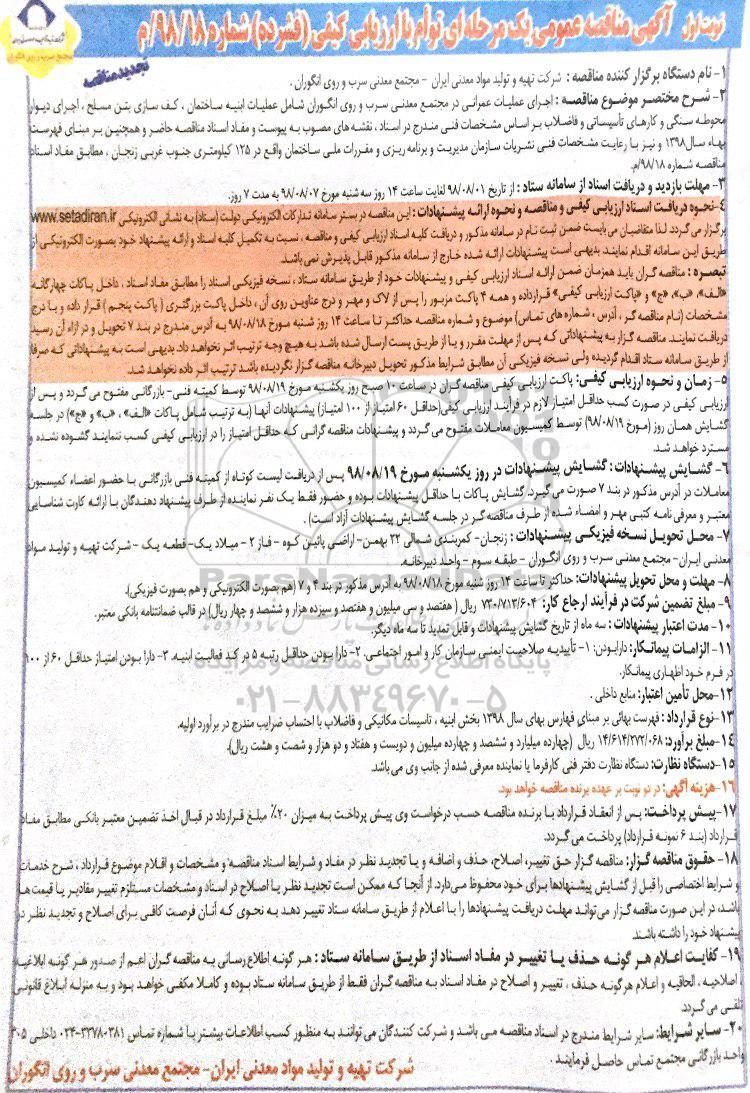 نوبت اول
آگهی مناقصه عمومی یک مرحله ای توأم با ارزیابی کیفی (فشرده) شماره ۹۸/۱۸/م
تجدید مناقصه
مجتمع سرب و روی انگوران
۱- نام دستگاه برگزار کننده مناقصه : شرکت تهیه و تولید مواد معدنی ایران - مجتمع معدنی سرب و روی انگوران .
۲- شرح مختصر موضوع مناقصه : اجرای عملیات عمرانی در مجتمع معدنی سرب و روی انگوران شامل عملیات ابنیه ساختمان ، کف سازی بتن مسلح ، اجرای دیوار
محوطه سنگی و کارهای تأسیساتی و فاضلاب بر اساس مشخصات فنی مندرج در اسناد ، نقشه های مصوب به پیوست و مفاد اسناد مناقصه حاضر و همچنین بر مبنای فهرست
بهاء سال ۱۳۹۸ و نیز با رعایت مشخصات فنی نشریات سازمان مدیریت و برنامه ریزی و مقررات ملی ساختمان واقع در ۱۲۵ کیلومتری جنوب غربی زنجان ، مطابق مفاد اسناد
مناقصه شماره ۹۸/۱۸/م.
۳- مهلت بازدید و دریافت اسناد از سامانه ستاد : از تاریخ ۹۸/۰۸/۰۱ لغایت ساعت ۱۴ روز سه شنبه مورخ ۹۸/۰۸/۰۷ به مدت ۷ روز.
۴- نحوه دریافت اسناد ارزیابی کیفی و مناقصه و نحوه ارائه پیشنهادات : این مناقصه در بستر سامانه تدارکات الکترونیکی دولت (ستاد) به نشانی الکترونیکی www.setadiran.ir
برگزار می گردد. لذا متقاضیان می بایست ضمن ثبت نام در سامانه مذکور و دریافت کلیه اسناد ارزیابی کیفی و مناقصه ، نسبت به تکمیل کلیه اسناد و ارائه پیشنهاد خود بصورت الکترونیکی از
طریق این سامانه اقدام نمایند. بدیهی است پیشنهادات ارائه شده خارج از سامانه مذکور قابل پذیرش نمی باشد.
تبصره : مناقصه گران باید همزمان ضمن ارائه اسناد ارزیابی کیفی و پیشنهادات خود از طریق سامانه ستاد ، نسخه فیزیکی اسناد را مطابق مفاد اسناد ، داخل پاکات چهارگانه
«الف»، «ب»، «ج» و «پاکت ارزیابی کیفی» قرارداده و همه ۴ پاکت مزبور را پس از لاک و مهر و درج عناوین روی آن ، داخل پاکت بزرگتری ( پاکت پنجم ) قرار داده و با درج
مشخصات (نام مناقصه گر ، آدرس ، شماره های تماس) موضوع و شماره مناقصه حداکثر تا ساعت ۱۴ روز شنبه مورخ ۹۸/۰۸/۱۸ به آدرس مندرج در بند ۷ تحویل و در ازاء آن رسید
دریافت نمایند. مناقصه گزار به پیشنهاداتی که پس از مهلت مقرر و یا از طریق پست ارسال شده باشد به هیچ وجه ترتیب اثر نخواهد داد. بدیهی است به پیشنهاداتی که صرفا
از طریق سامانه ستاد اقدام گردیده ولی نسخه فیزیکی آن مطابق شرایط مذکور تحویل دبیرخانه مناقصه گزار نگردیده باشد ترتیب اثر داده نخواهد شد.
۵- زمان و نحوه ارزیابی کیفی: پاکت ارزیابی کیفی مناقصه گران در ساعت ۱۰ صبح روز یکشنبه مورخ ۹۸/۰۸/۱۹ توسط کمیته فنی- بازرگانی مفتوح می گردد و پس از
ارزیابی کیفی در صورت کسب حداقل امتیاز لازم در فرآیند ارزیابی کیفی(حداقل ۶۰ امتیاز از ۱۰۰ امتیاز) پیشنهادات آنها (به ترتیب شامل پاکات «الف» ، «ب» و «ج») در جلسه
گشایش همان روز (مورخ ۹۸/۰۸/۱۹) توسط کمیسیون معاملات مفتوح می گردد و پیشنهادات مناقصه گرانی که حداقل امتیاز را در ارزیابی کیفی کسب ننمایند گشوده نشده و
مسترد خواهد شد.
۶- گشایش پیشنهادات : گشایش پیشنهادات در روز یکشنبه مورخ ۹۸/۰۸/۱۹ پس از دریافت لیست کوتاه از کمیته فنی بازرگانی با حضور اعضاء کمیسیون
معاملات در آدرس مذکور در بند ۷ صورت می گیرد. گشایش پاکات با حداقل پیشنهادات بوده و حضور فقط یک نفر نماینده از طرف پیشنهاد دهندگان با ارائه کارت شناسایی
معتبر و معرفی نامه کتبی مهر و امضاء شده از طرف مناقصه گر در جلسه گشایش پیشنهادات آزاد است) .
۷- محل تحویل نسخه فیزیکی پیشنهادات : زنجان- کمربندی شمالی ۲۲ بهمن- اراضی پائین کوه - فاز ۲ - میلاد یک- قطعه یک - شرکت تهیه و تولید مواد
معدنی ایران- مجتمع معدنی سرب و روی انگوران - طبقه سوم - واحد دبیرخانه.
۸- مهلت و محل تحویل پیشنهادات: حداکثر تا ساعت ۱۴ روز شنبه مورخ ۹۸/۰۸/۱۸ به آدرس مذکور در بند ۴ و ۷ (هم بصورت الکترونیکی و هم بصورت فیزیکی).
۹- مبلغ تضمین شرکت در فرآیند ارجاع کار: ۷۳۰/۷۱۳/۶۰۴ ریال ( هفتصد و سی میلیون و هفتصد و سیزده هزار و ششصد و چهار ریال) در قالب ضمانتنامه بانکی معتبر.
۱۰- مدت اعتبار پیشنهادات : سه ماه از تاریخ گشایش پیشنهادات و قابل تمدید تا سه ماه دیگر.
۱۱- الزامات پیمانکار: دارابودن: ۱- تأییدیه صلاحیت ایمنی سازمان کار و امور اجتماعی. ۲- دارا بودن حداقل رتبه ۵ در کد فعالیت ابنیه. ۳- دارا بودن امتیاز حداقل ۶۰ از ۱۰۰
در فرم خود اظهاری پیمانکار.
۱۲- محل تأمین اعتبار: منابع داخلی .
۱۳- نوع قرارداد : فهرست بهائی بر مبنای فهارس بهای سال ۱۳۹۸ بخش ابنیه ، تاسیسات مکانیکی و فاضلاب با احتساب ضرایب مندرج در برآورد اولیه.
۱۴- مبلغ برآورد: ۱۴/۶۱۴/۲۷۲/۰۶۸ ریال (چهارده میلیارد و ششصد و چهارده میلیون و دویست و هفتاد و دو هزار و شصت و هشت ریال).
۱۵- دستگاه نظارت: دستگاه نظارت دفتر فنی کارفرما یا نماینده معرفی شده از جانب وی می باشد.
۱۶- هزینه آگهی: در دو نوبت بر عهده برنده مناقصه خواهد بود.
۱۷- پیش پرداخت: پس از انعقاد قرارداد با برنده مناقصه حسب درخواست وی پیش پرداخت به میزان ۲۰٪ مبلغ قرارداد در قبال اخذ تضمین معتبر بانکی مطابق مفاد
قرارداد (بند ۶ نمونه قرارداد) پرداخت می گردد.
۱۸- حقوق مناقصه گزار: مناقصه گزار حق تغییر، اصلاح، حذف و اضافه و یا تجدید نظر در مفاد و شرایط اسناد مناقصه و مشخصات و اقلام موضوع قرارداد ، شرح خدمات
و شرایط اختصاصی را قبل از گشایش پیشنهادها برای خود محفوظ می دارد. از آنجا که ممکن است تجدید نظر یا اصلاح در اسناد و مشخصات مستلزم تغییر مقادیر یا قیمت ها
باشد، در این صورت مناقصه گزار می تواند مهلت دریافت پیشنهادها را با اعلام از طریق سامانه ستاد تغییر دهد به نحوی که آنان فرصت کافی برای اصلاح و تجدید نظر در
پیشنهاد خود را داشته باشند.
۱۹- کفایت اعلام هر گونه حذف یا تغییر در مفاد اسناد از طریق سامانه ستاد : هر گونه اطلاع رسانی به مناقصه گران اعم از صدور هر گونه ابلاغیه،
اصلاحیه ، الحاقیه و اعلام هرگونه حذف ، تغییر و اصلاح در مفاد اسناد به مناقصه گران فقط از طریق سامانه ستاد بوده و کاملا مکفی خواهد بود و به منزله ابلاغ قانونی
تلقی می گردد.
۲۰- سایر شرایط: سایر شرایط مندرج در اسناد مناقصه می باشد و شرکت کنندگان می توانند به منظور کسب اطلاعات بیشتر با شماره تماس ۳۳۷۸۰۳۸۱-۰۲۴ داخلی ۳۰۵
واحد بازرگانی مجتمع تماس حاصل فرمایند .
شرکت تهیه و تولید مواد معدنی ایران- مجتمع معدنی سرب و روی انگوران
ParsNamadData
پایگاه اطلاع رسانی مناقصه و مزایده
۰۲۱-۸۸۳۴۹۶۷۰-۵